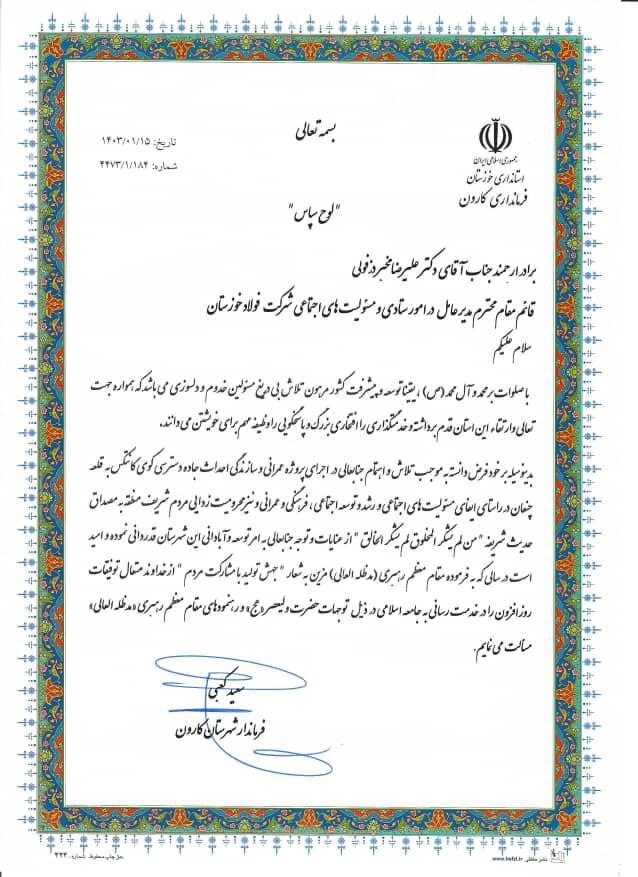 بسمه تعالی
جمهوری اسلامی ایران
استانداری خوزستان
فرمانداری کارون
تاریخ: ۱۴۰۳/۰۱/۱۵
شماره: ۴۴۷۳/۱/۱۸۴
"لوح سپاس"
برادر ارجمند جناب آقای دکتر علیرضا مخبر دزفولی
قائم مقام محترم مدیر عامل در امور ستادی و مسئولیت های اجتماعی شرکت فولاد خوزستان
سلام علیکم
با صلوات بر محمد و آل محمد (ص) ، یقینا توسعه و پیشرفت کشور مرهون تلاش بی دریغ مسئولین خدوم و دلسوزی می باشد که همواره جهت
تعالی و ارتقاء این استان قدم برداشته و خدمتگذاری را افتخاری بزرگ و پاسخگویی را وظیفه مهم برای خویشتن می دانند.
بدینوسیله بر خود فرض دانسته به موجب تلاش و اهتمام جنابعالی در اجرای پروژه عمرانی و سازندگی احداث جاده دسترسی کوی کانتکس به قلعه
چنعان در راستای ایفای مسئولیت های اجتماعی و رشد و توسعه اجتماعی ، فرهنگی و عمرانی و نیز محرومیت زدایی مردم شریف منطقه به مصداق
حدیث شریفه " من لم یشکر المخلوق لم یشکر الخالق " از عنایات و توجه جنابعالی به امر توسعه و آبادانی این شهرستان قدردانی نموده و امید
است در سالی که به فرموده مقام معظم رهبری (مدظله العالی) مزین به شعار " جهش تولید با مشارکت مردم " از خداوند متعال توفیقات
روز افزون را در خدمت رسانی به جامعه اسلامی در ذیل توجهات حضرت ولیعصر «عج» و رهنمودهای مقام معظم رهبری «مدظله العالی»
مسالت می نمایم.
سعید کعبی
فرماندار شهرستان کارون
حق چاپ محفوظ. شماره: ۴۲۲